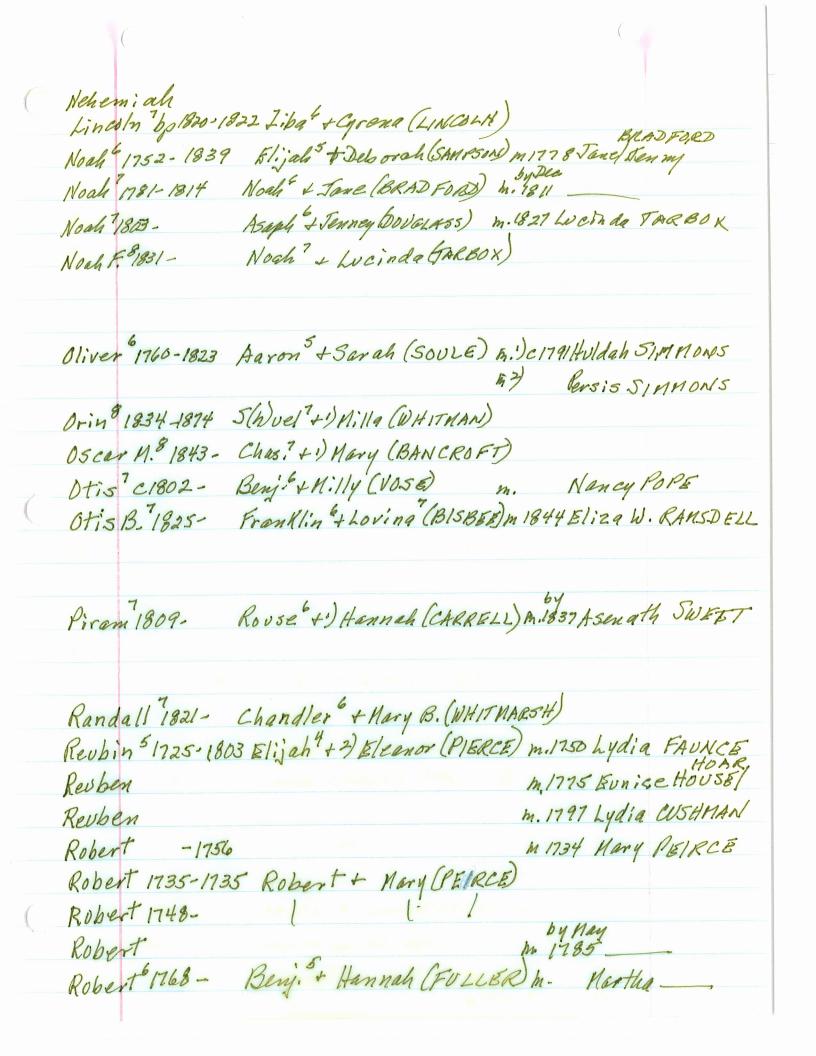 Nehemiah
Lincoln⁷ bp 1820-1822 Ziba⁶ + Cyrena (LINCOLN)
BRADFORD
Noah⁶ 1752 - 1839 Elijah⁵ + Deborah (SAMPSON) m 1778 Jane/Jenny
by Dec
Noah⁷ 1781-1814 Noah⁶ + Jane (BRADFORD) m. 1811 ____
Noah⁷ 1803- Asaph⁶ + Jenney (DOUGLASS) m. 1827 Lucinda TARBOX
Noah F.⁸ 1831- Noah⁷ + Lucinda (TARBOX)
Oliver⁶ 1760-1823 Aaron⁵ + Sarah (SOULE) m. 1) c 1791 Huldah SIMMONS
m 2) Persis SIMMONS
Orin⁸ 1834-1874 S(h)uel⁷ + 1) Milla (WHITMAN)
Oscar M.⁸ 1843- Chas.⁷ + 1) Mary (BANCROFT)
Otis⁷ c 1802- Benj.⁶ + Milly (VOSE) m. Nancy POPE
Otis B.⁷ 1825- Franklin⁶ + Lovina⁷ (BISBEE) m 1844 Eliza W. RAMSDELL
by
Piram⁷ 1809- Rouse⁶ + 1) Hannah (CARRELL) m. 1837 Asenath SWEET
Randall⁷ 1821- Chandler⁶ + Mary B. (WHITMARSH)
Reubin⁵ 1725-1803 Elijah⁴ + 2) Eleanor (PIERCE) m. 1750 Lydia FAUNCE
HOAR
Reuben m. 1775 Eunice HOUSE/
Reuben m. 1797 Lydia CUSHMAN
Robert -1756 m 1734 Mary PEIRCE
Robert 1735-1735 Robert + Mary (PEIRCE)
Robert 1748- | | |
by May
Robert m. 1785 ____
Robert⁶ 1768- Benj.⁵ + Hannah (FULLER) m. Martha ____